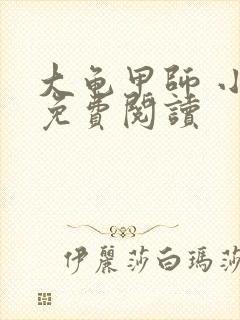 大龜甲師 小
免費閱讀
伊麗莎白瑪莎